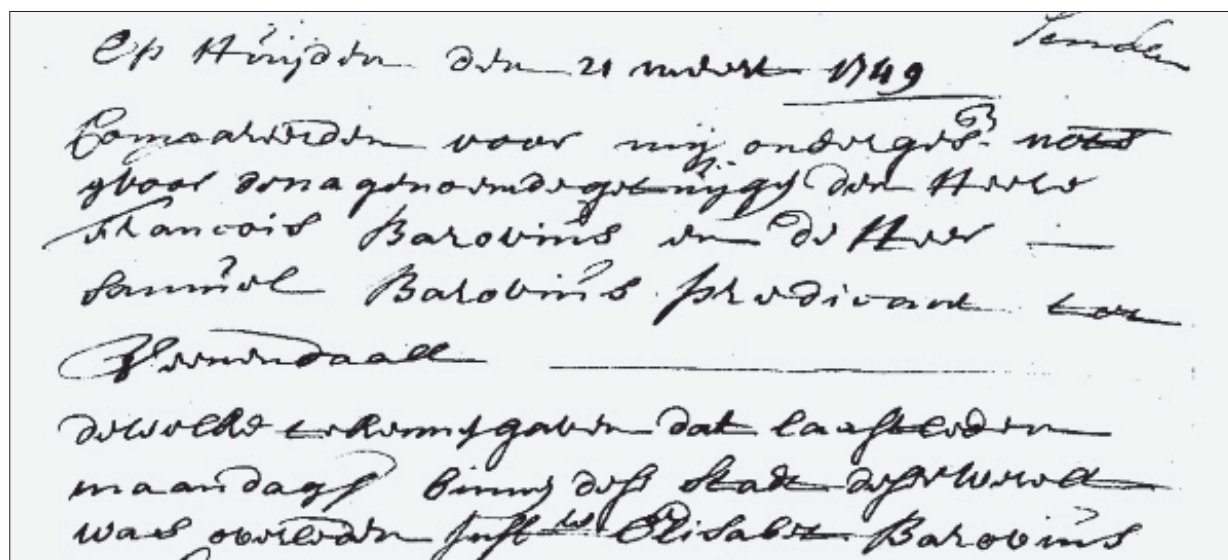 Op Huijden den 21 meert 1749
Compareerden voor mij onderges. nots
voor de nagenoemde getuijgen den Heere
Francois Barovius en de Heer —
Samuel Barovius predicant tot
Veenendaall
dewelke te kennis gaven dat laastleden
maandags binnen dese stadt deser werelt
was overleden Juffw Elisabet Barovius